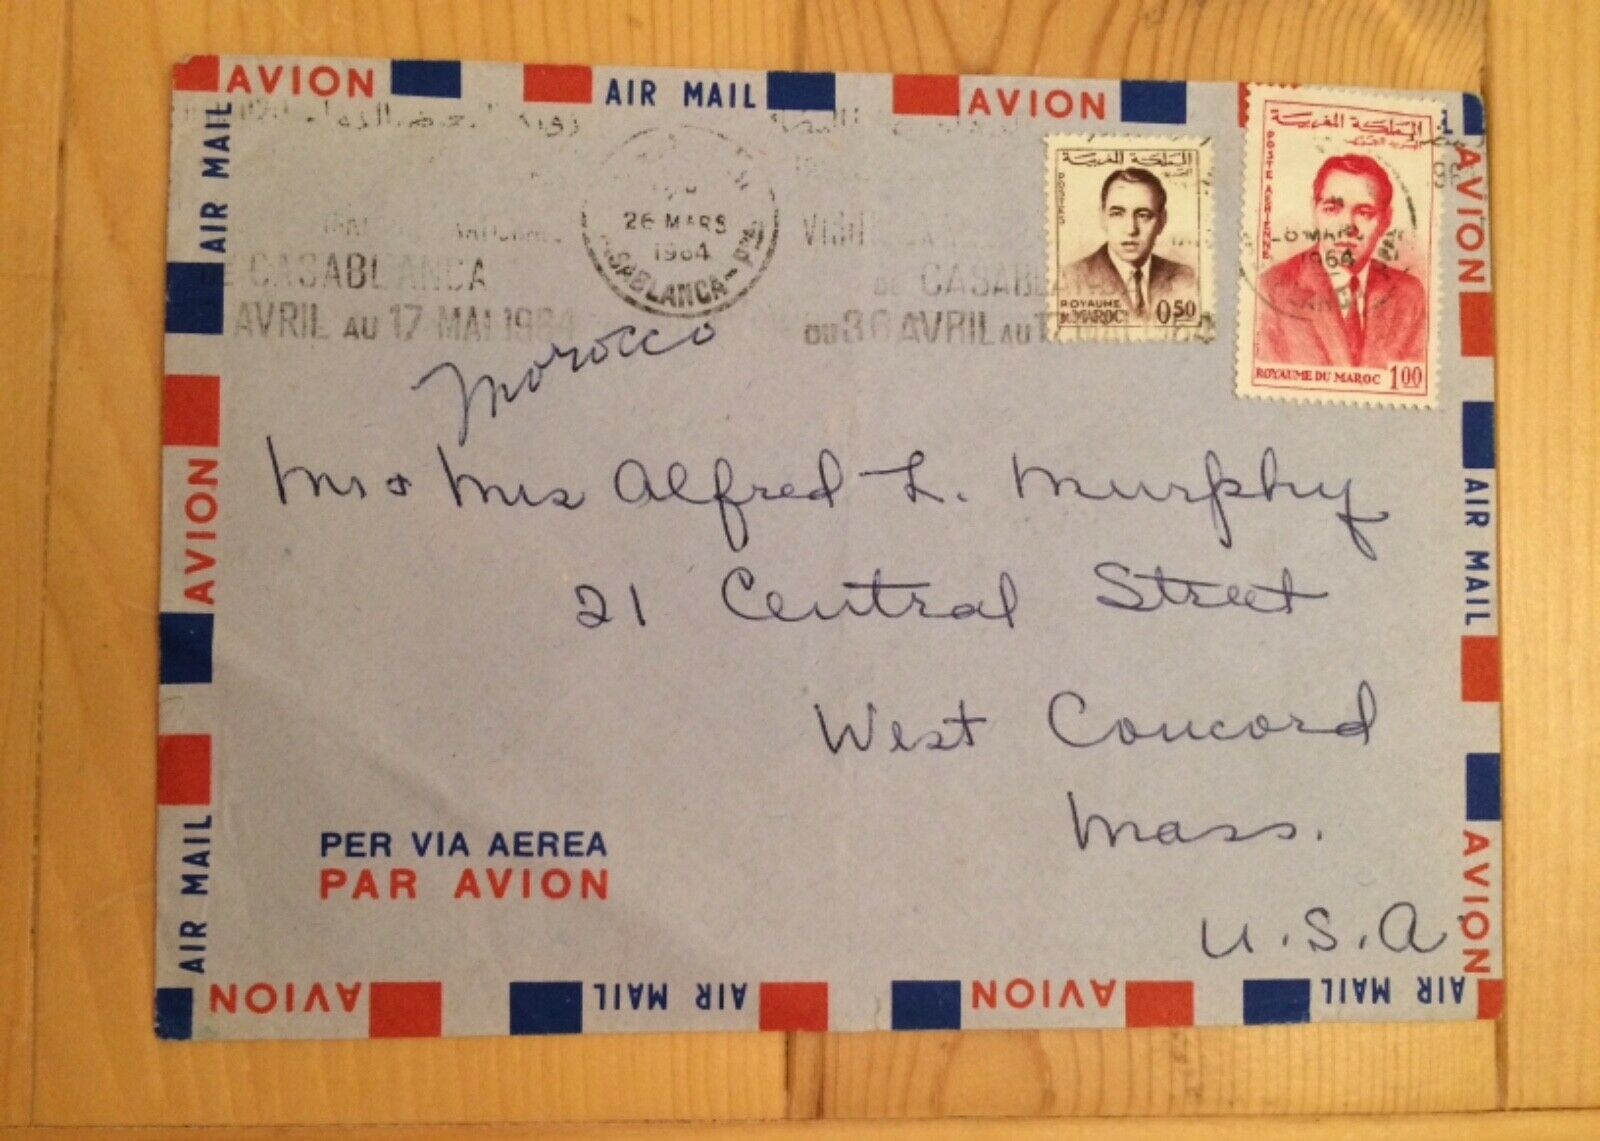 AVION AIR MAIL AVION
المملكة المغربية
المملكة المغربية
POSTES
POSTE AERIENNE
26 MARS
1964
CASABLANCA
DE CASABLANCA
AVRIL AU 17 MAI 1964
DE CASABLANCA
AVRIL AU
ROYAUME DU MAROC 0.50
ROYAUME DU MAROC 1.00
Morocco
Mr & Mrs Alfred L. Murphy
21 Central Street
West Concord
Mass.
U.S.A
PER VIA AEREA
PAR AVION
AIR MAIL
AVION
AIR MAIL
AVION
AIR MAIL
AVION
AVION AIR MAIL AVION AIR MAIL